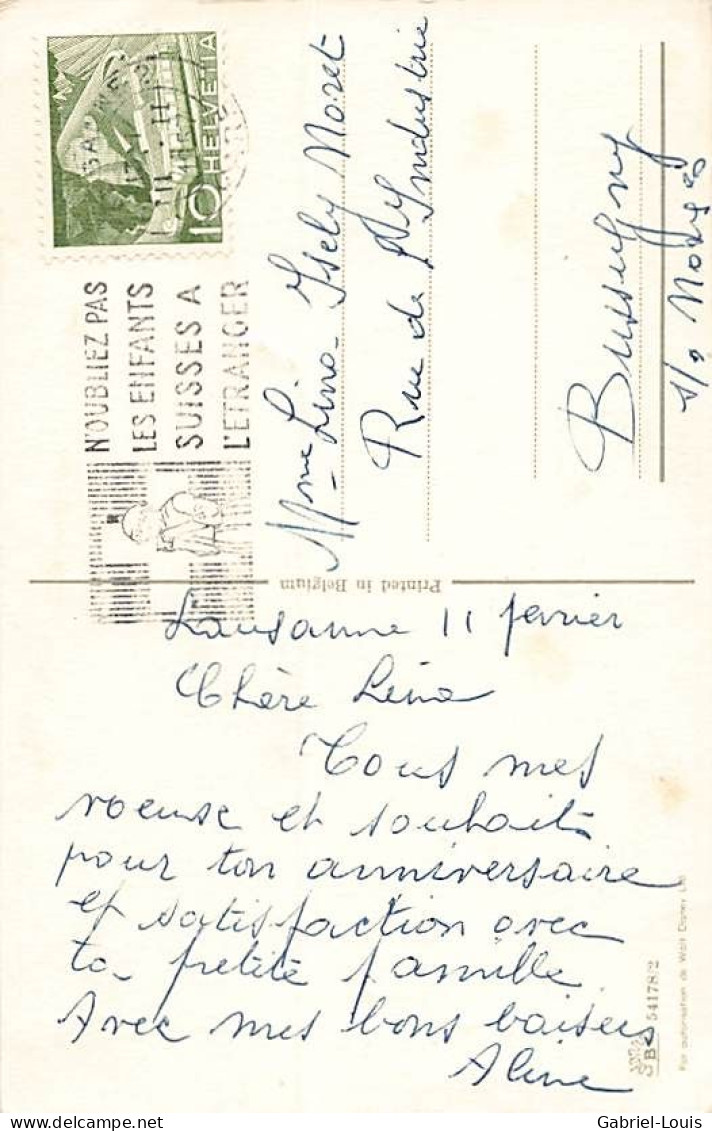 HELVETIA
10
N'OUBLIEZ PAS
LES ENFANTS
SUISSES A
L'ETRANGER
Mme Lina Isely Noret
Rue de l'Industrie
Bussigny
s/s
Printed in Belgium
Lausanne 11 fevrier
Chère Lina
Tous mes
voeuse et souhaits
pour ton anniversaire
et satisfaction avec
ta petite famille
Avec mes bons baisers
Aline
54178/2
Par autorisation de Walt Disney
Gabriel-Louis